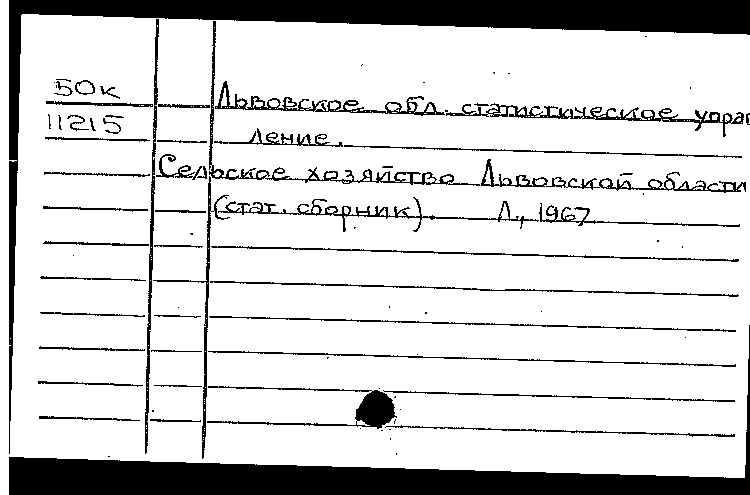 50к
Львовское обл. статистическое управ
11215
ление.
Сельское хозяйство Львовской области
(стат. сборник). Л., 1967